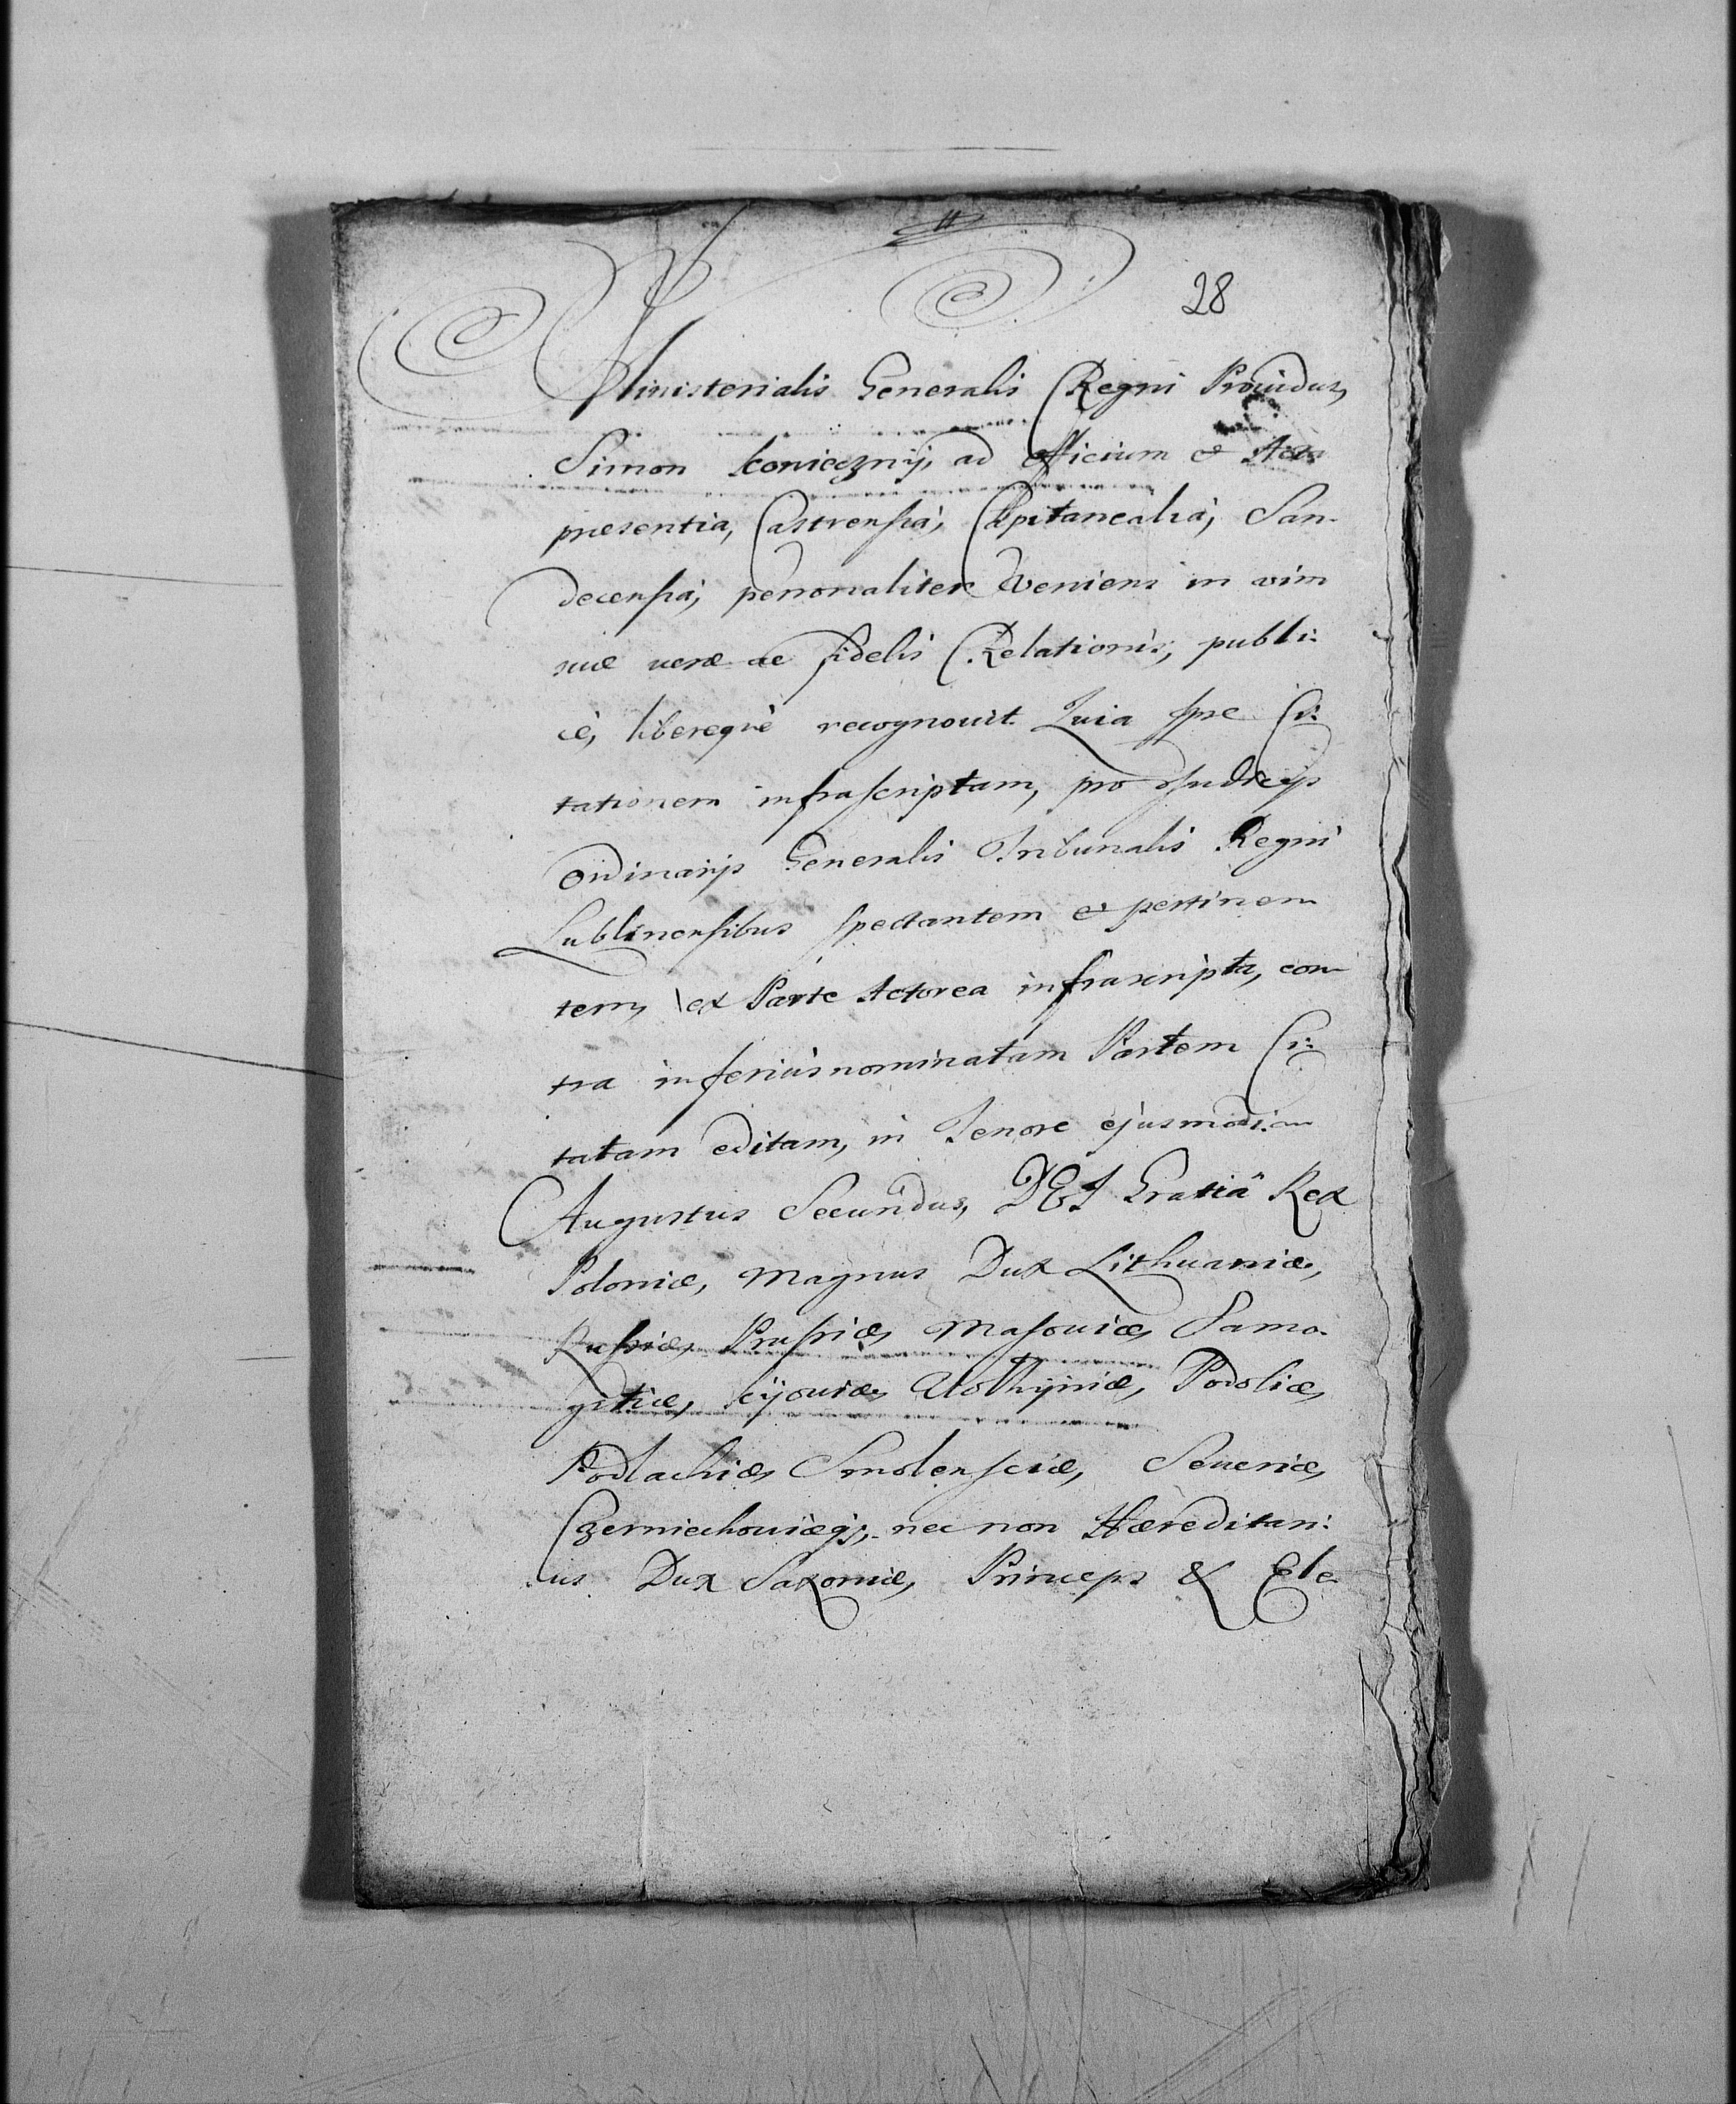 28
Ministerialis Generalis Regni Prouidus,
Simon Koniecznÿ, ad Officium & Acta
præsentia, Castrensia, Capitanealia, San-
decensia, personaliter Veniens in vim
suæ veræ ac fidelis Relationis, publi:
cè, libereque recognouit Quia Ipse Ci:
tationem infrascriptam, pro Judicijs
Ordinarijs Generalis Tribunalis Regni
Lublinensibus spectantem & pertinen
tem, ex Parte Actorea infrascripta, con
tra inferius nominatam Partem Ci:
tatam editam, in Tenore ejusmodi
Augustus Secundus, DEI Gratiâ Rex
Poloniæ, Magnus Dux Lithuaniæ,
Russiæ, Prussiæ, Masouiæ, Samo-
gitiæ, Kijouiæ, Volhÿniæ, Podoliæ,
Podlachiæ, Smolensciæ, Seueriæ,
Czerniechouiæq;, nec non Hæreditari:
us Dux Saxoniæ, Princeps & Ele-